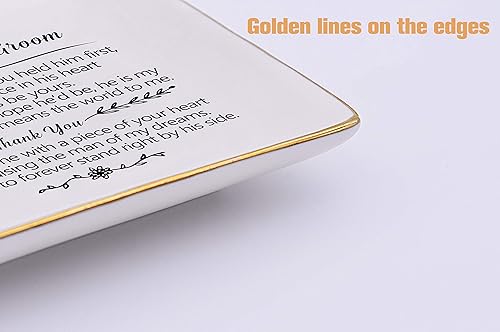 Golden lines on the edges
Groom
you held him first,
in his heart
be yours.
hope he'd be, he is my
means the world to me.
Thank You
me with a piece of your heart
the man of my dreams,
to forever stand right by his side.